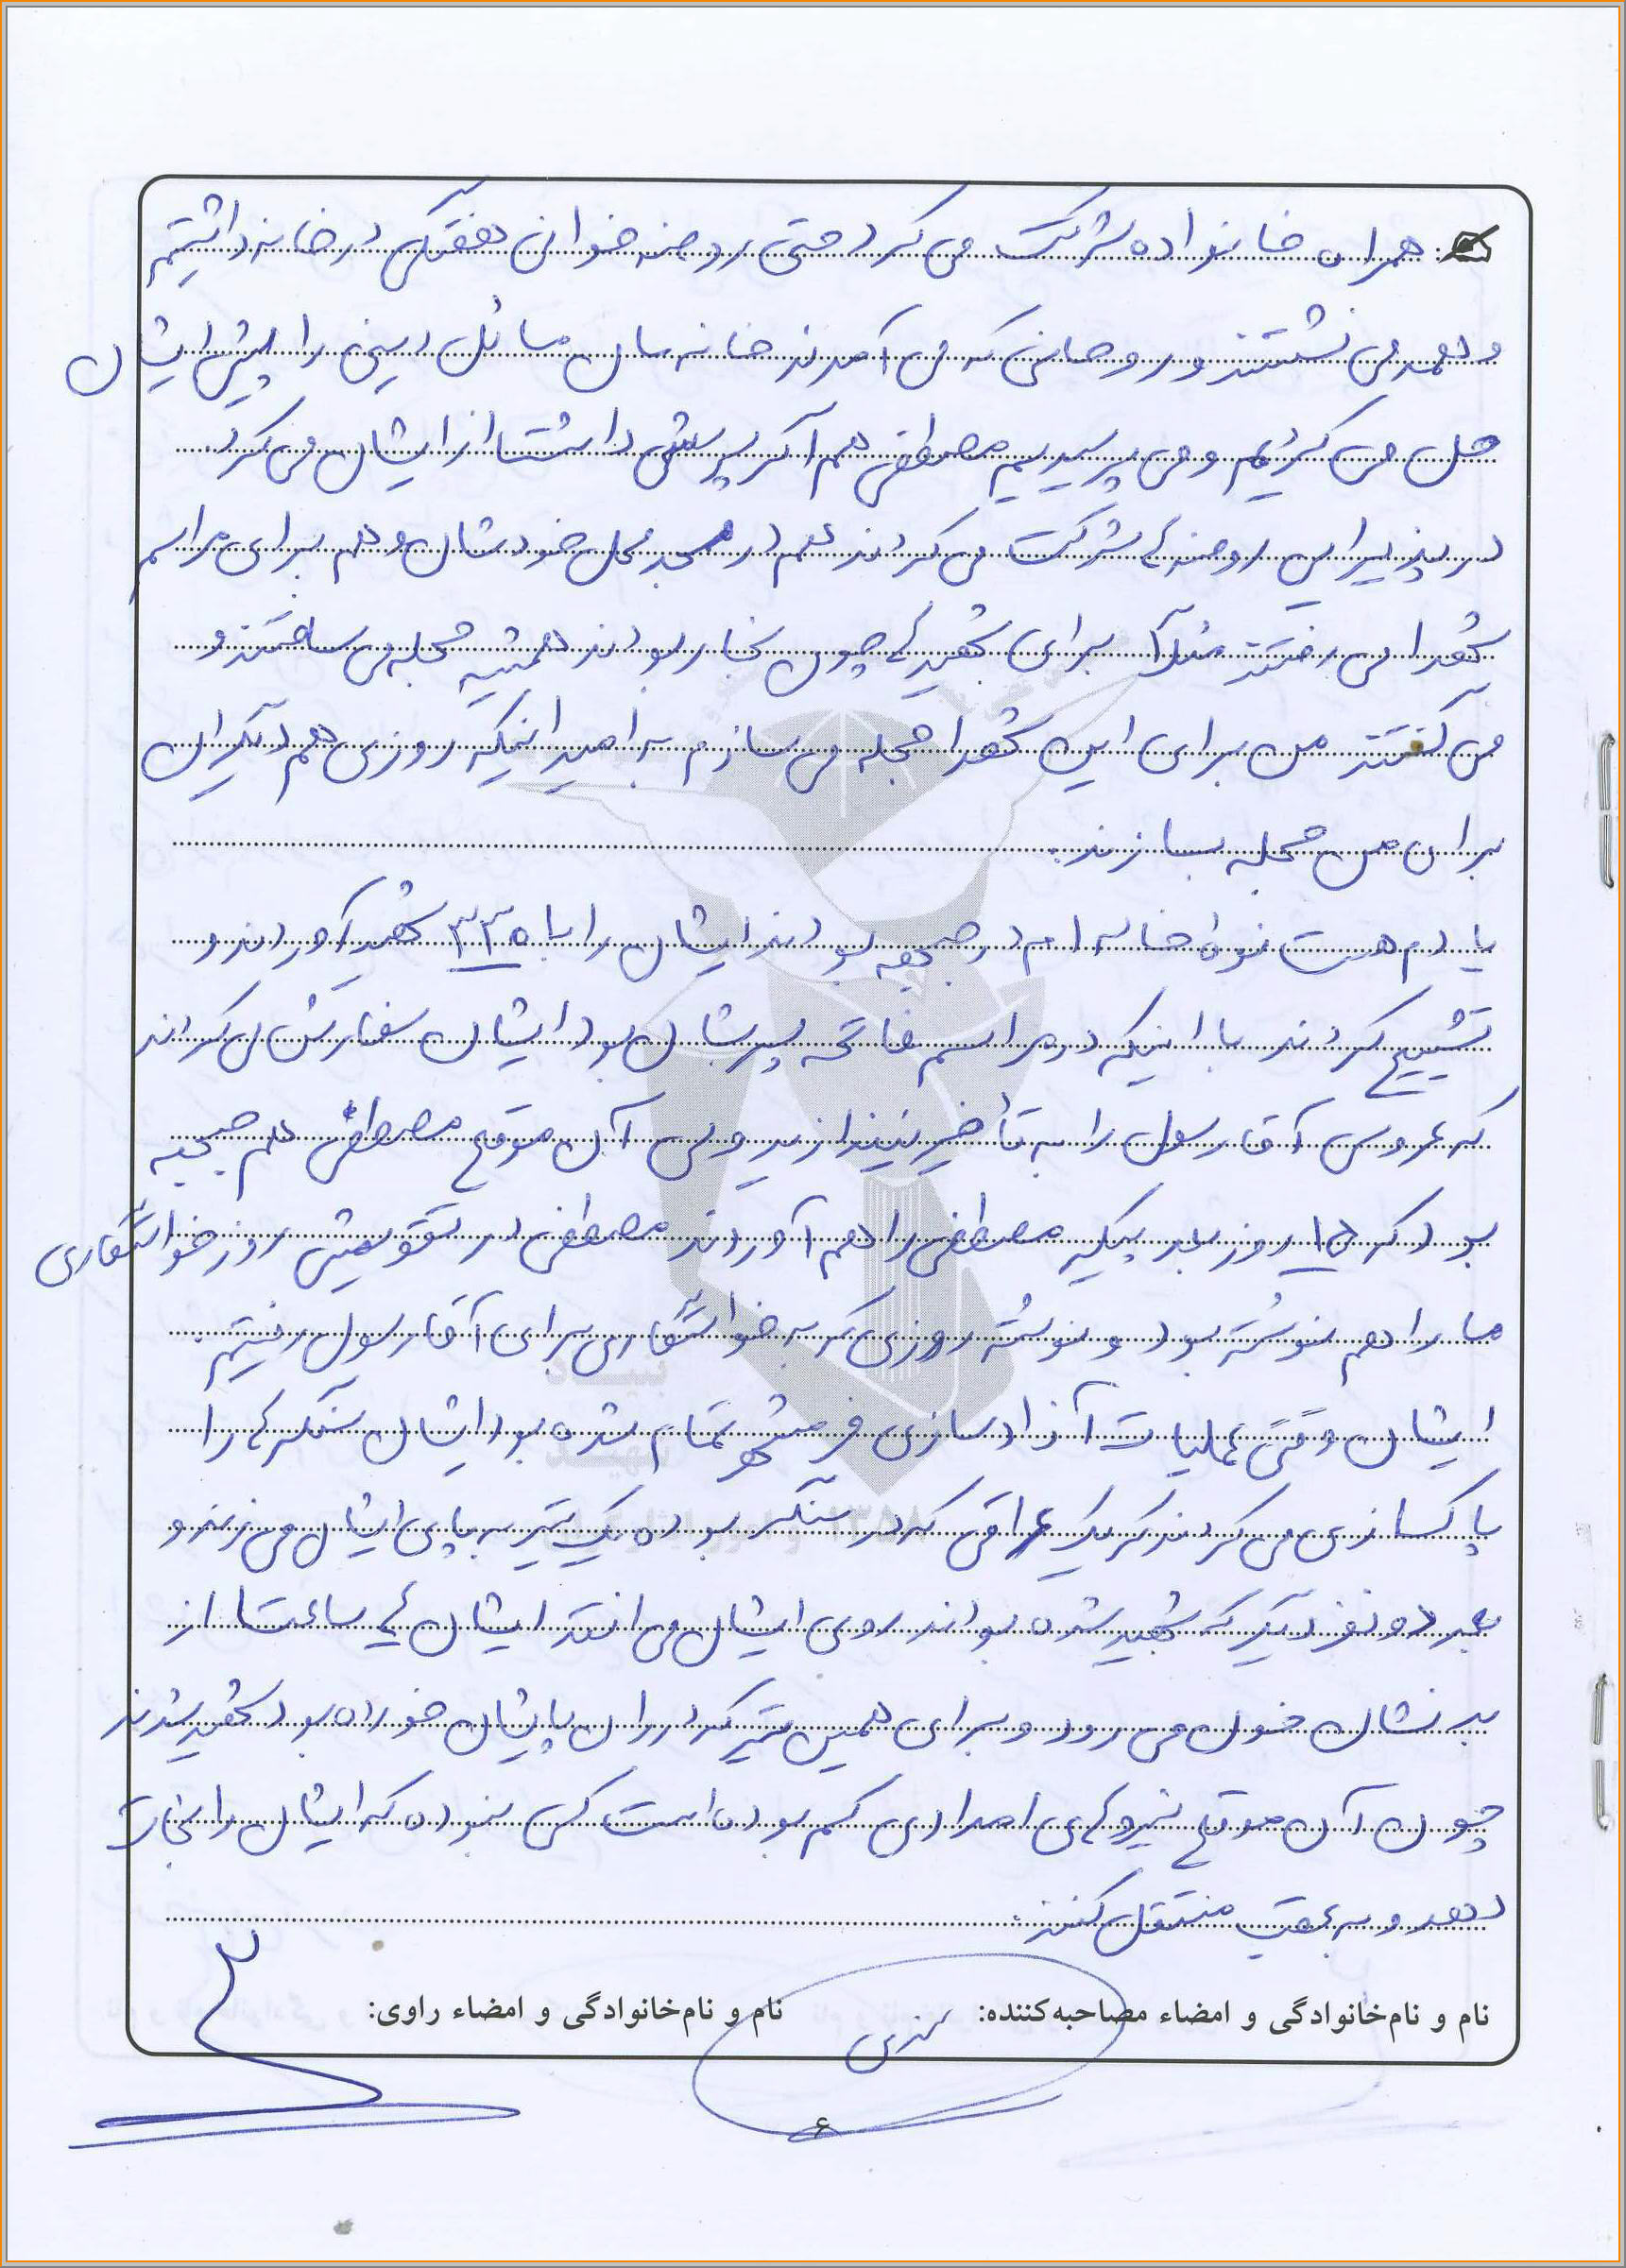 همراه خانواده شرکت می کرد حتی روضه خوانی هفتگی در خانه داشتیم
و همه می نشستند و روحانی که می آمدند خانه مان مسائل دینی را پیش ایشان
حل می کردیم و می پرسیدیم مصطفی هم اگر پرسشی داشت از ایشان می کرد.
در پذیرایی روضه ها شرکت می کردند هم در مسجد محل خودشان و هم برای مراسم
شهدا می رفتند مثلاً برای شهید ها چون نجار بودند همیشه حجله می ساختند و
می گفتند من برای این شهدا حجله می سازم به امید اینکه روزی هم دیگران
برای من حجله بسازند.
یادم هست نوه خاله ام در جبهه بودند ایشان را با ۳۳۵ شهید آوردند و
تشییع کردند با اینکه در مراسم فاتحه پسرشان بود ایشان سفارش می کردند
که عروسی آقا رسول را به تأخیر نیندازید ولی آن موقع مصطفی هم جبهه
بود که ۱۵ روز بعد پیکر مصطفی را هم آوردند مصطفی در تقویمش روز خواستگاری
ما را هم نوشته بود و نوشته روزی که به خواستگاری برای آقا رسول رفتیم.
ایشان وقتی عملیات آزادسازی خرمشهر تمام شده بود ایشان سنگرها را
پاکسازی می کردند که یک عراقی که در سنگر بوده یک تیر به پای ایشان می زند و
بعد دو نفر دیگر که شهید شده بودند روی ایشان می افتند ایشان ساعت ها از
بدنشان خون می رود و برای همین تیر که در ران پایشان خورده بود شهید شدند
چون آن موقع نیروهای امدادی کم بوده است کسی نبوده که ایشان را نجات
دهد و به عقب منتقل کنند.
نام و نام‌خانوادگی و امضاء مصاحبه‌کننده: نام و نام‌خانوادگی و امضاء راوی:
۶